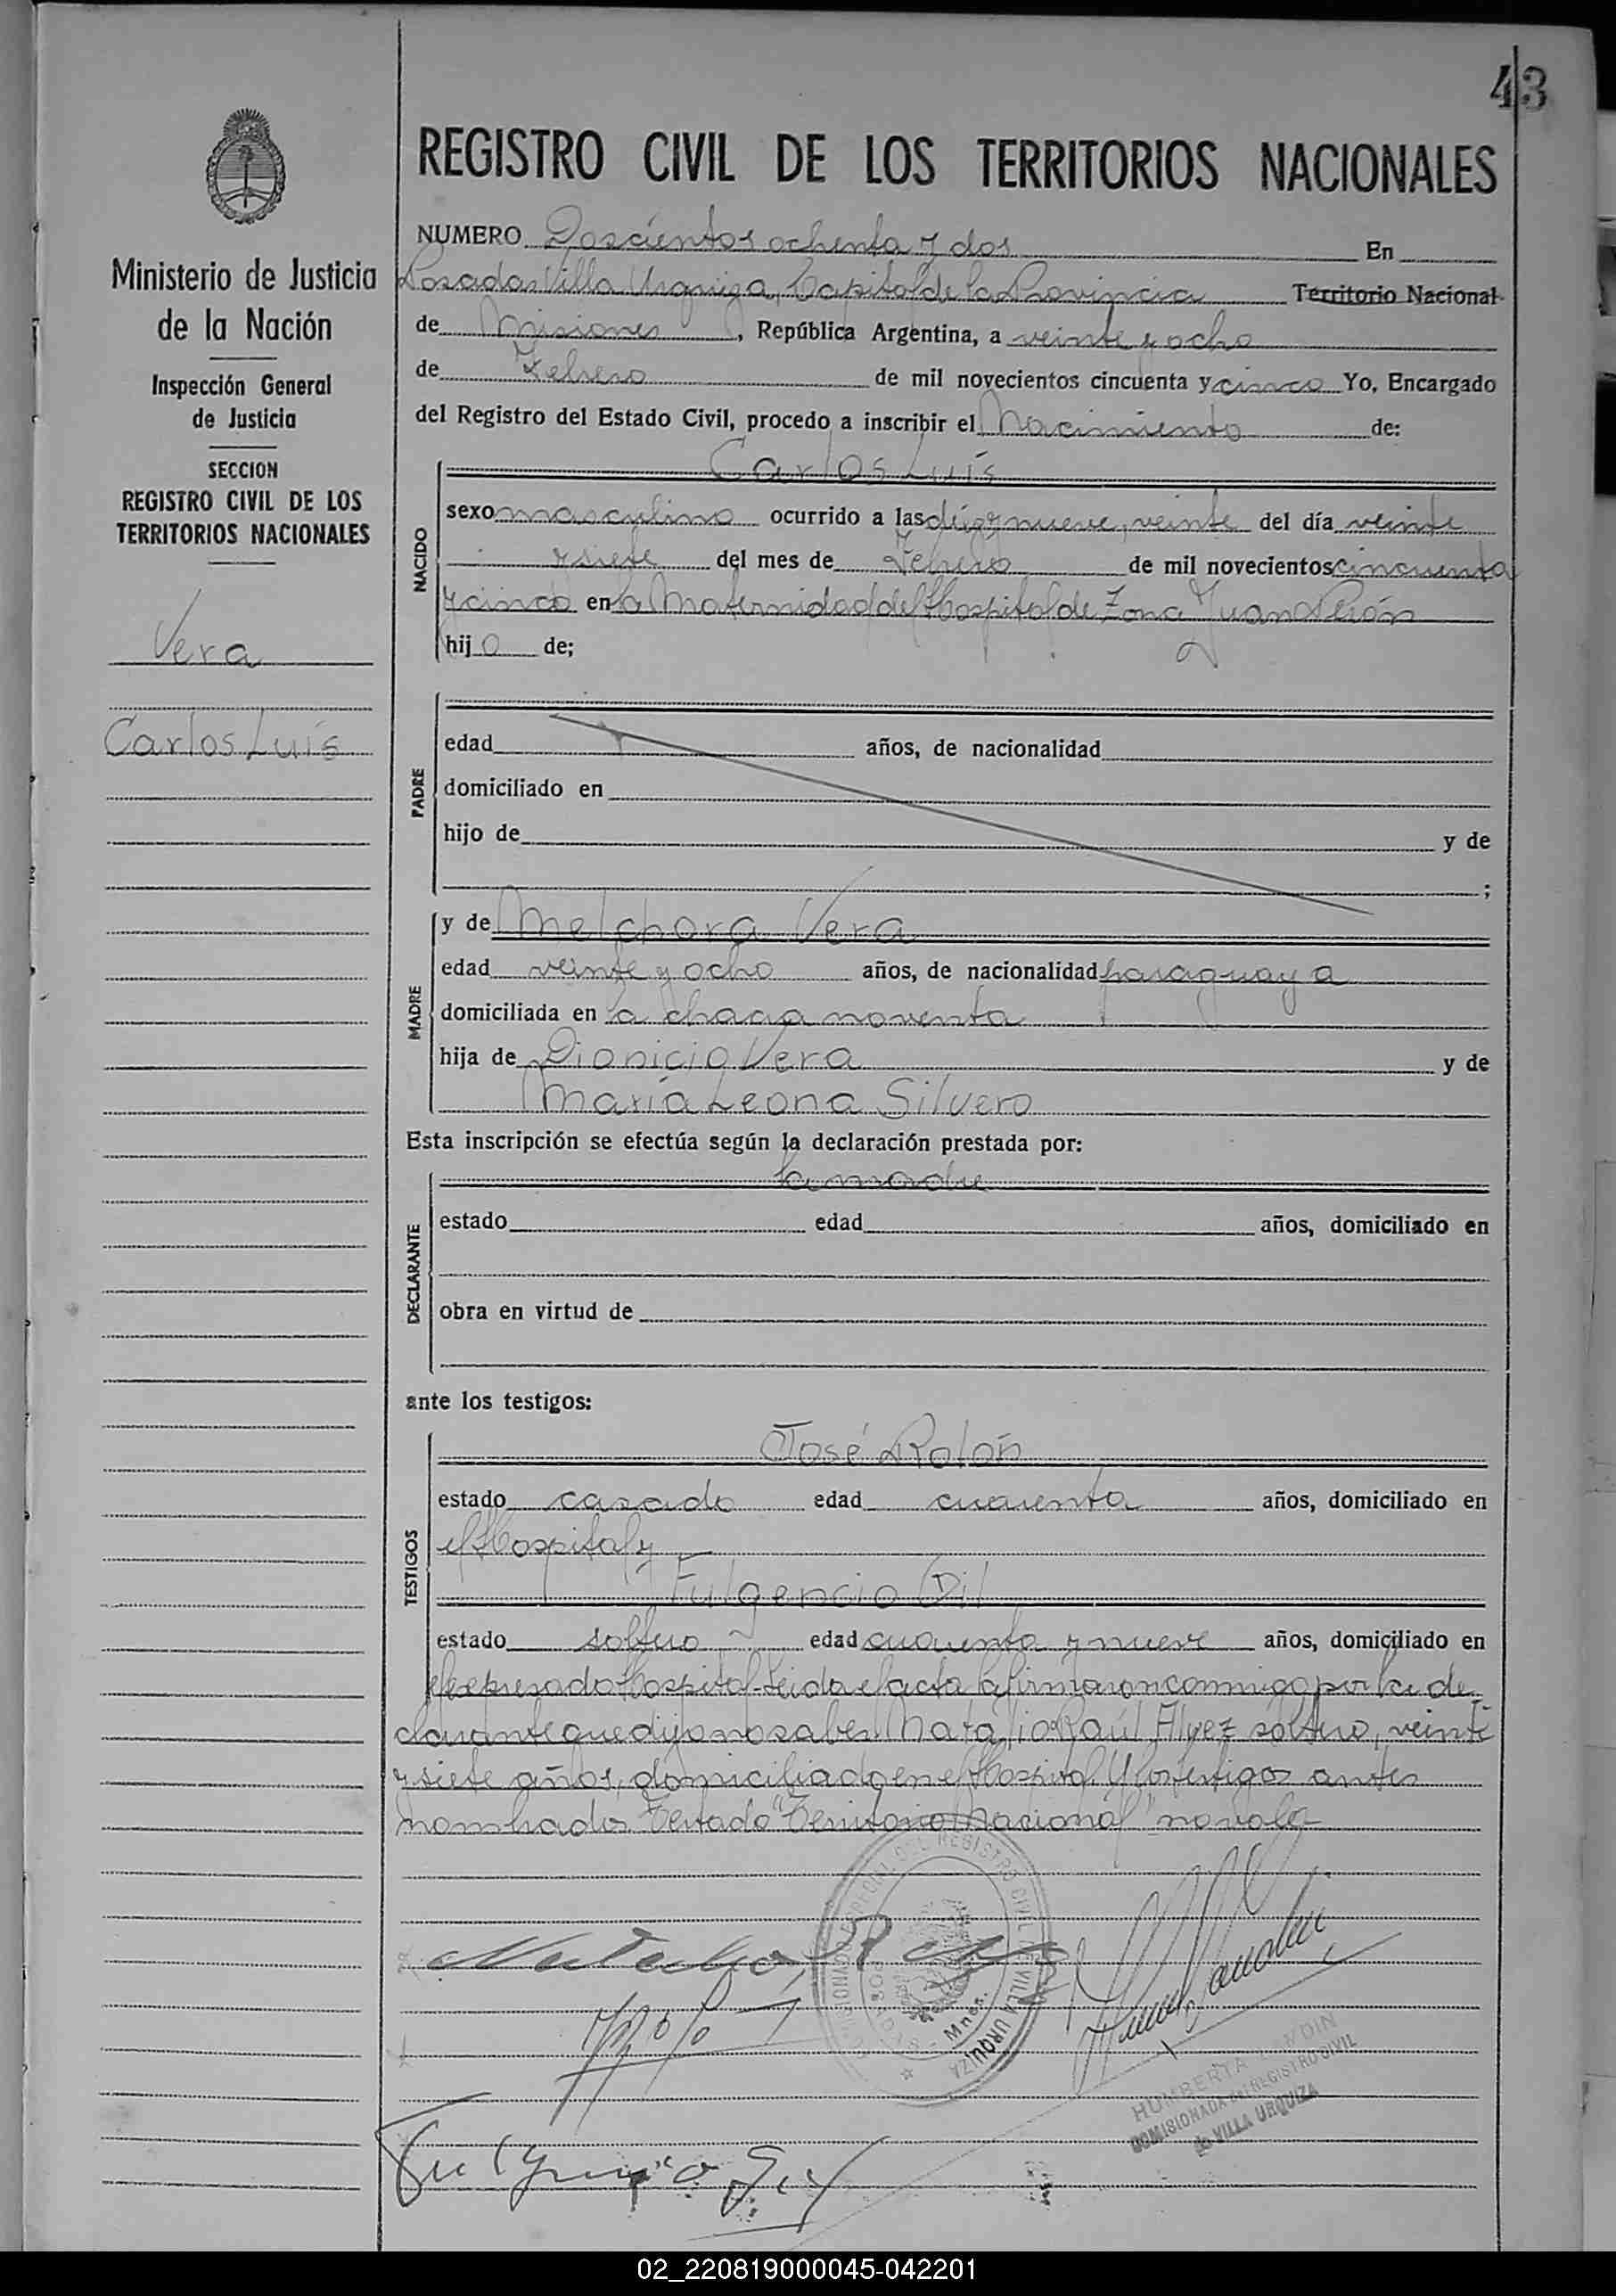 43
REGISTRO CIVIL DE LOS TERRITORIOS NACIONALES
Ministerio de Justicia
de la Nación
Inspección General
de Justicia
SECCION
REGISTRO CIVIL DE LOS
TERRITORIOS NACIONALES
Vera
Carlos Luis
NUMERO Doscientos ochenta y dos En
Posadas Villa Urquiza, Capital de la Provincia Territorio Nacional
de Misiones, República Argentina, a veinte y ocho
de Febrero de mil novecientos cincuenta y cinco Yo, Encargado
del Registro del Estado Civil, procedo a inscribir el Nacimiento de:
Carlos Luis
NACIDO
sexo masculino ocurrido a las diez y nueve, veinte del día veinte
y siete del mes de Febrero de mil novecientos cincuenta
y cinco en la Maternidad del Hospital de Zona Juan Perón
hijo de;
PADRE
edad años, de nacionalidad
domiciliado en
hijo de y de
;
MADRE
y de Melchora Vera
edad veinte y ocho años, de nacionalidad paraguaya
domiciliada en la chacra noventa
hija de Dionicio Vera y de
María Leona Silvero
Esta inscripción se efectúa según la declaración prestada por:
la madre
DECLARANTE
estado edad años, domiciliado en
obra en virtud de
ante los testigos:
TESTIGOS
José Rolón
estado casado edad cuarenta años, domiciliado en
el Hospital y
Fulgencio Gil
estado soltero edad cuarenta y nueve años, domiciliado en
el expresado Hospital. Leida el acta la firmaron conmigo por la de
clarante que dijo no saber Natalio Raúl Alvez soltero, veinte
y siete años, domiciliado en el Hospital. Y los testigos antes
nombrados. Testado "Territorio Nacional" no vale
COMISIONADO DEL REGISTRO CIVIL DE VILLA URQUIZA
POSADAS - Mnes.
HUMBERTA LANDIN
COMISIONADA del REGISTRO CIVIL
de VILLA URQUIZA
02_220819000045-042201